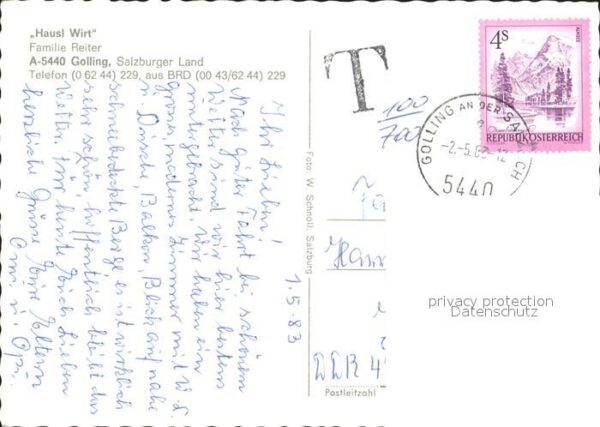 „Hausl Wirt"
Familie Reiter
A-5440 Golling, Salzburger Land
Telefon (0 62 44) 229, aus BRD (00 43/62 44) 229
Ihr Lieben!
Nach guter Fahrt bei schönem
Wetter sind wir hier bestens
untergebracht. Wir haben ein
großes modernes Zimmer mit W.C.
u. Dusche, Balkon, Blick auf nahe
schneebedeckte Berge, es ist wirklich
sehr schön, hoffentlich bleibt das
Wetter. Für heute Euch Lieben
herzliche Grüße Eure Eltern
Omi u. Opi.
1.5.83
Foto W. Schnoll, Salzburg
T
100
700
4S
REPUBLIK ÖSTERREICH
GOLLING AN DER SALZACH
-2.-5.83-12
5440
DDR 4
Postleitzahl
privacy protection
Datenschutz